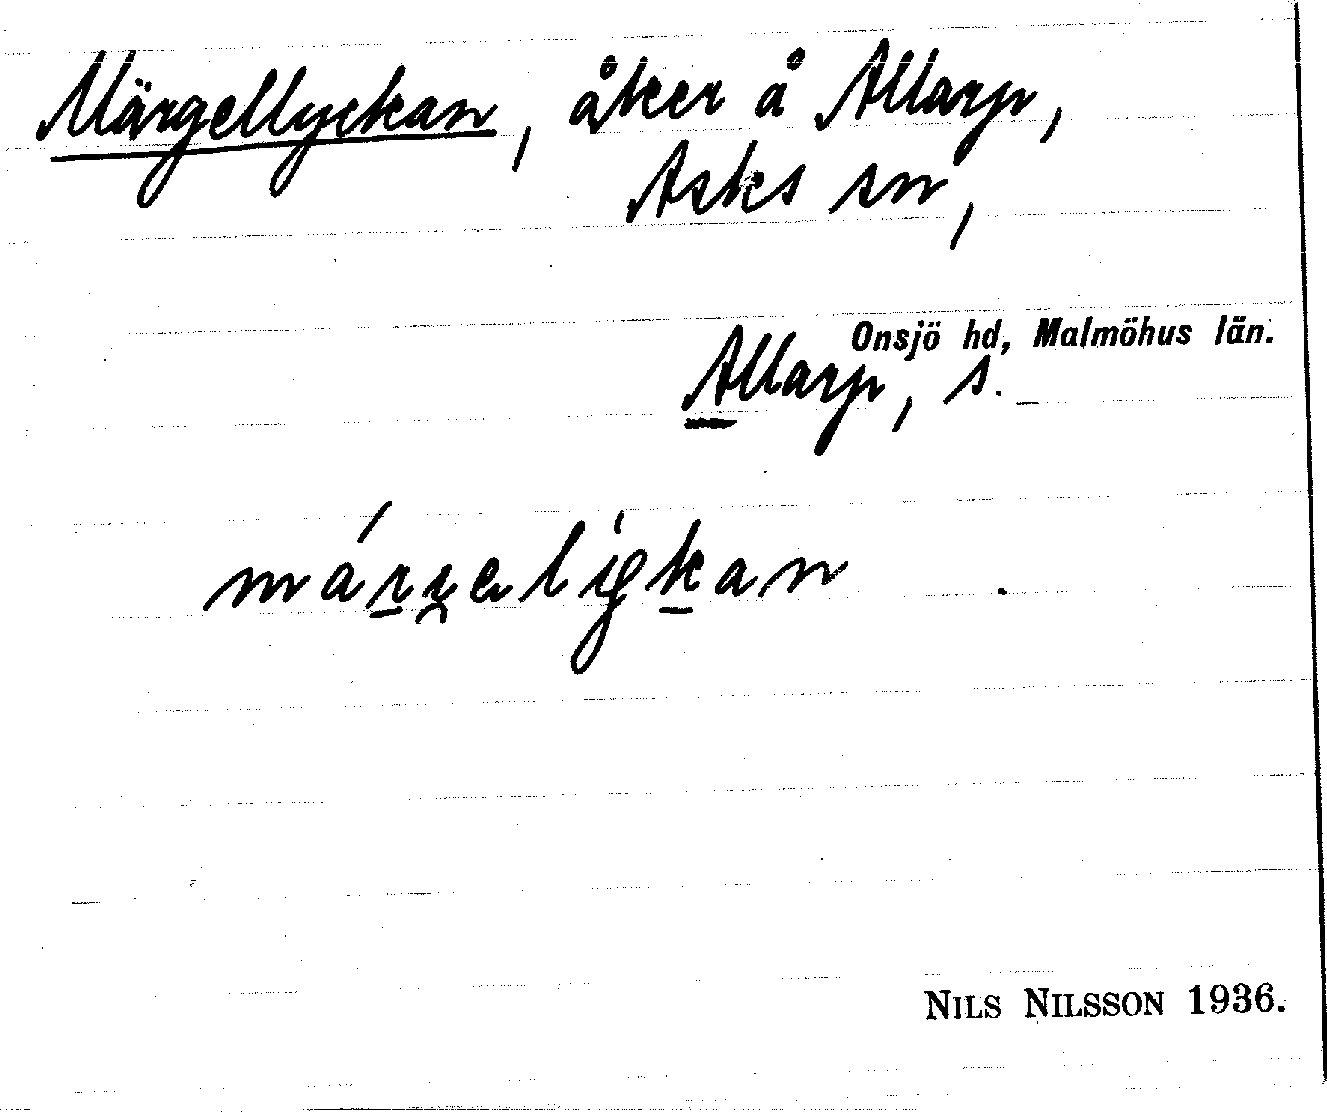 Märgellyckan, åker å Allarp,
Asks sn,
Onsjö hd, Malmöhus län.
Allarp, s.
NILS NILSSON 1936.